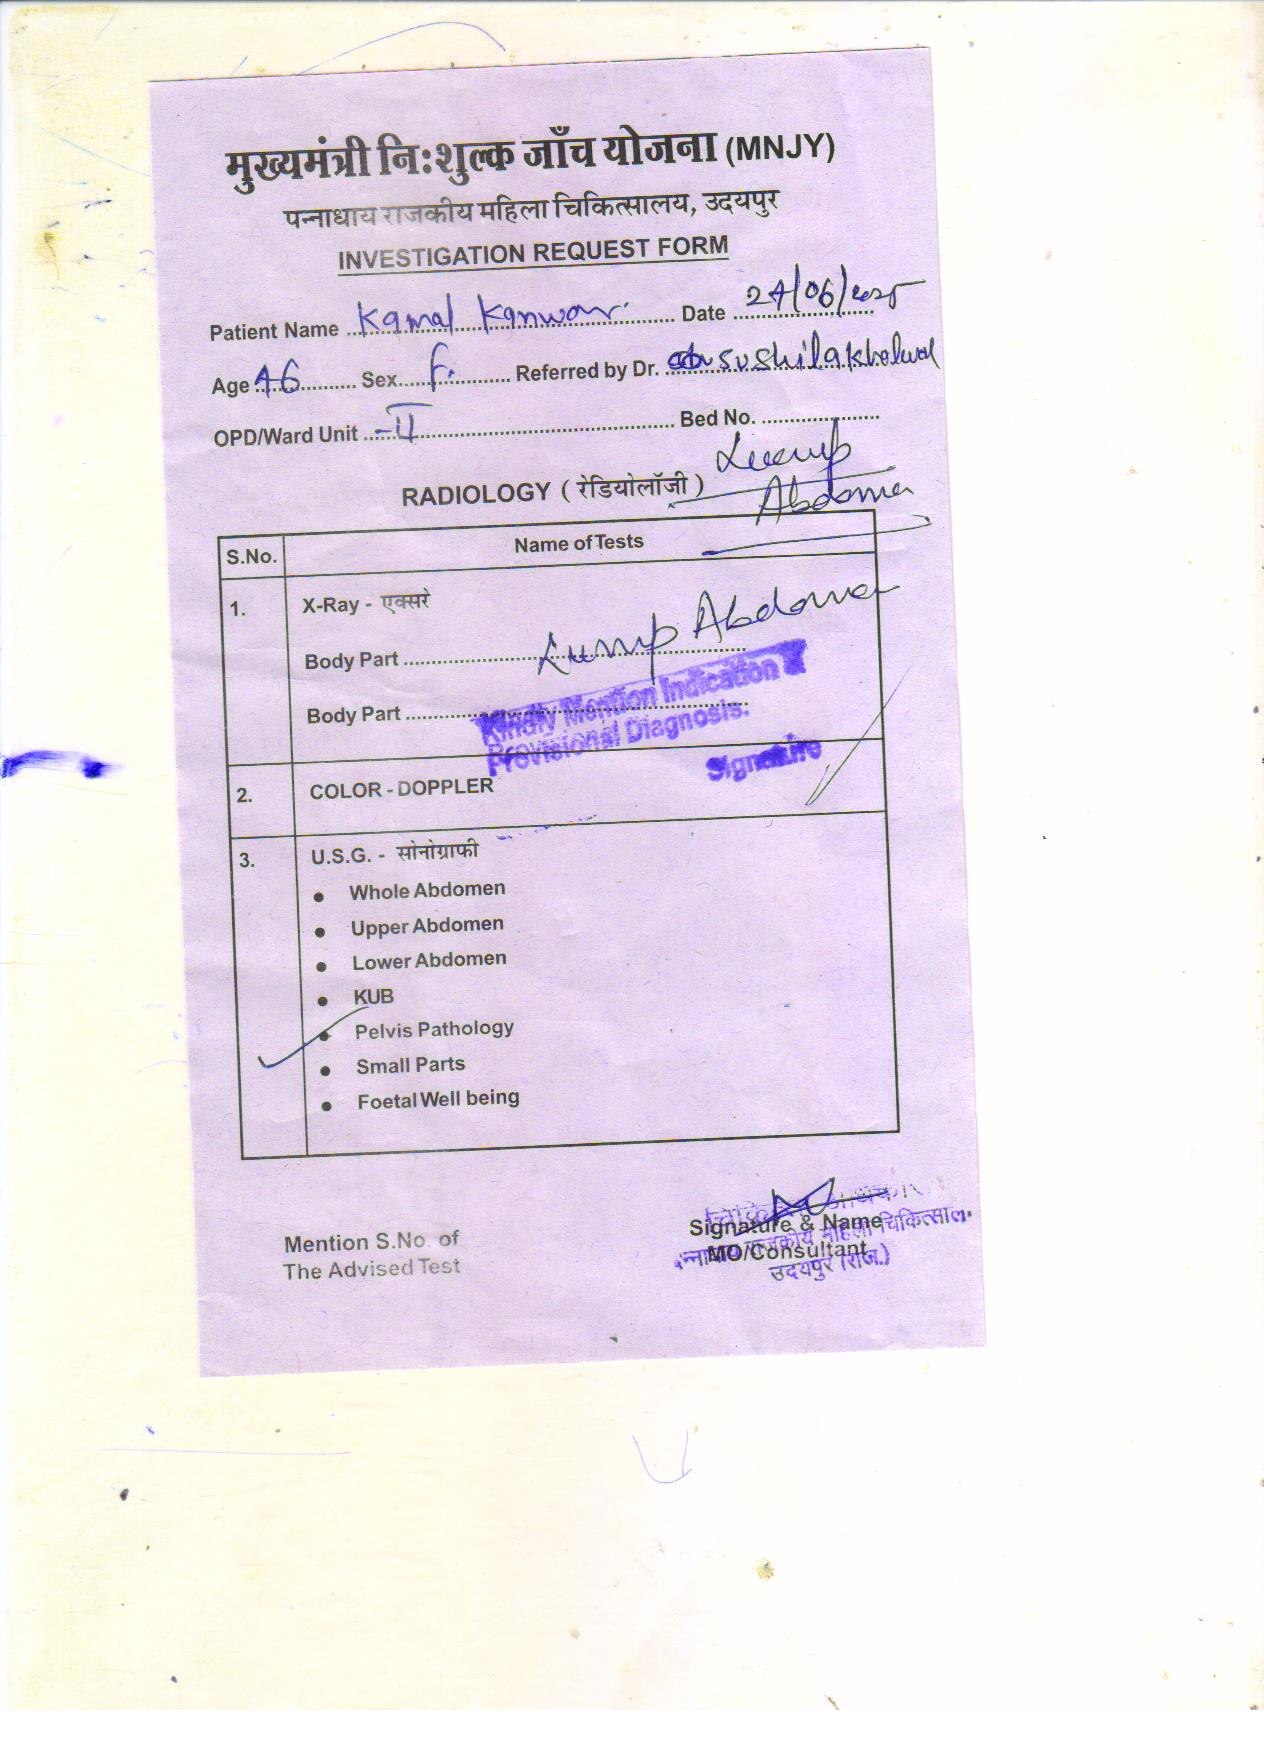 मुख्यमंत्री निःशुल्क जाँच योजना (MNJY)
पन्नाधाय राजकीय महिला चिकित्सालय, उदयपुर
INVESTIGATION REQUEST FORM
Patient Name Kamal Kanwar Date 24/06/2025
Age 46 Sex F. Referred by Dr. sushila khelwal
OPD/Ward Unit -II Bed No.
Lump
RADIOLOGY ( रेडियोलॉजी ) Abdomen
S.No. Name of Tests
1. X-Ray - एक्सरे
Body Part Lump Abdomen
Body Part
Kindly Mention Indication &
Provisional Diagnosis.
Signature
2. COLOR - DOPPLER
3. U.S.G. - सोनोग्राफी
• Whole Abdomen
• Upper Abdomen
• Lower Abdomen
• KUB
• Pelvis Pathology
• Small Parts
• Foetal Well being
Mention S.No. of
The Advised Test
Signature & Name
MO/Consultant
राजकीय महिला चिकित्साल
उदयपुर (राज.)